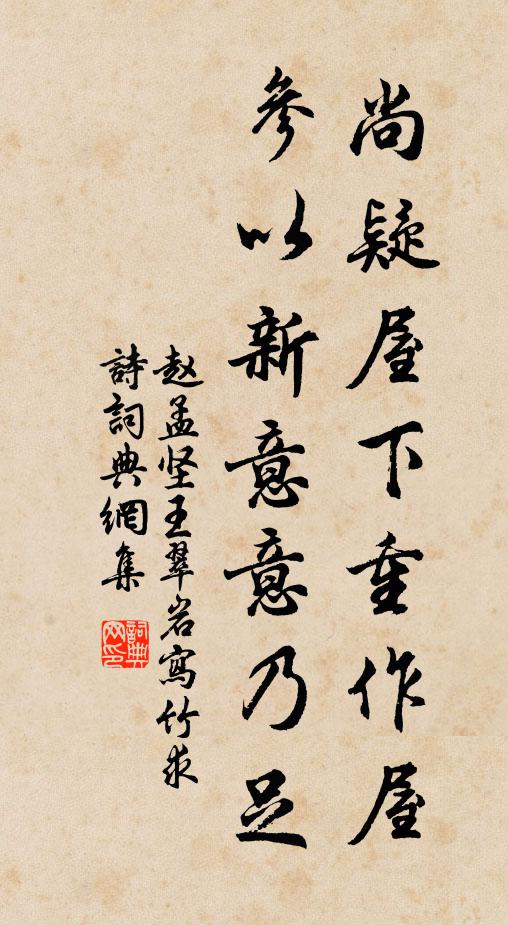 尚疑屋下重作屋
参以新意意乃足
赵孟坚王翠岩寫竹求
詩詞典網集
詞典网印